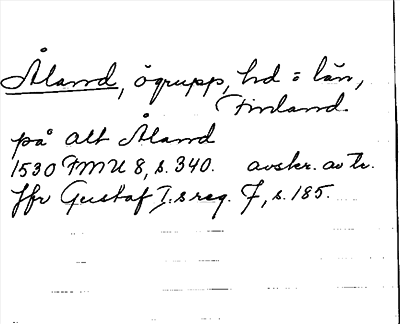 Åland, ögrupp, hd o län,
Finland.
på alt Åland
1530 FMU 8, s. 340. avskr. av tr.
Jfr Gustaf I.s reg. 7, s. 185.